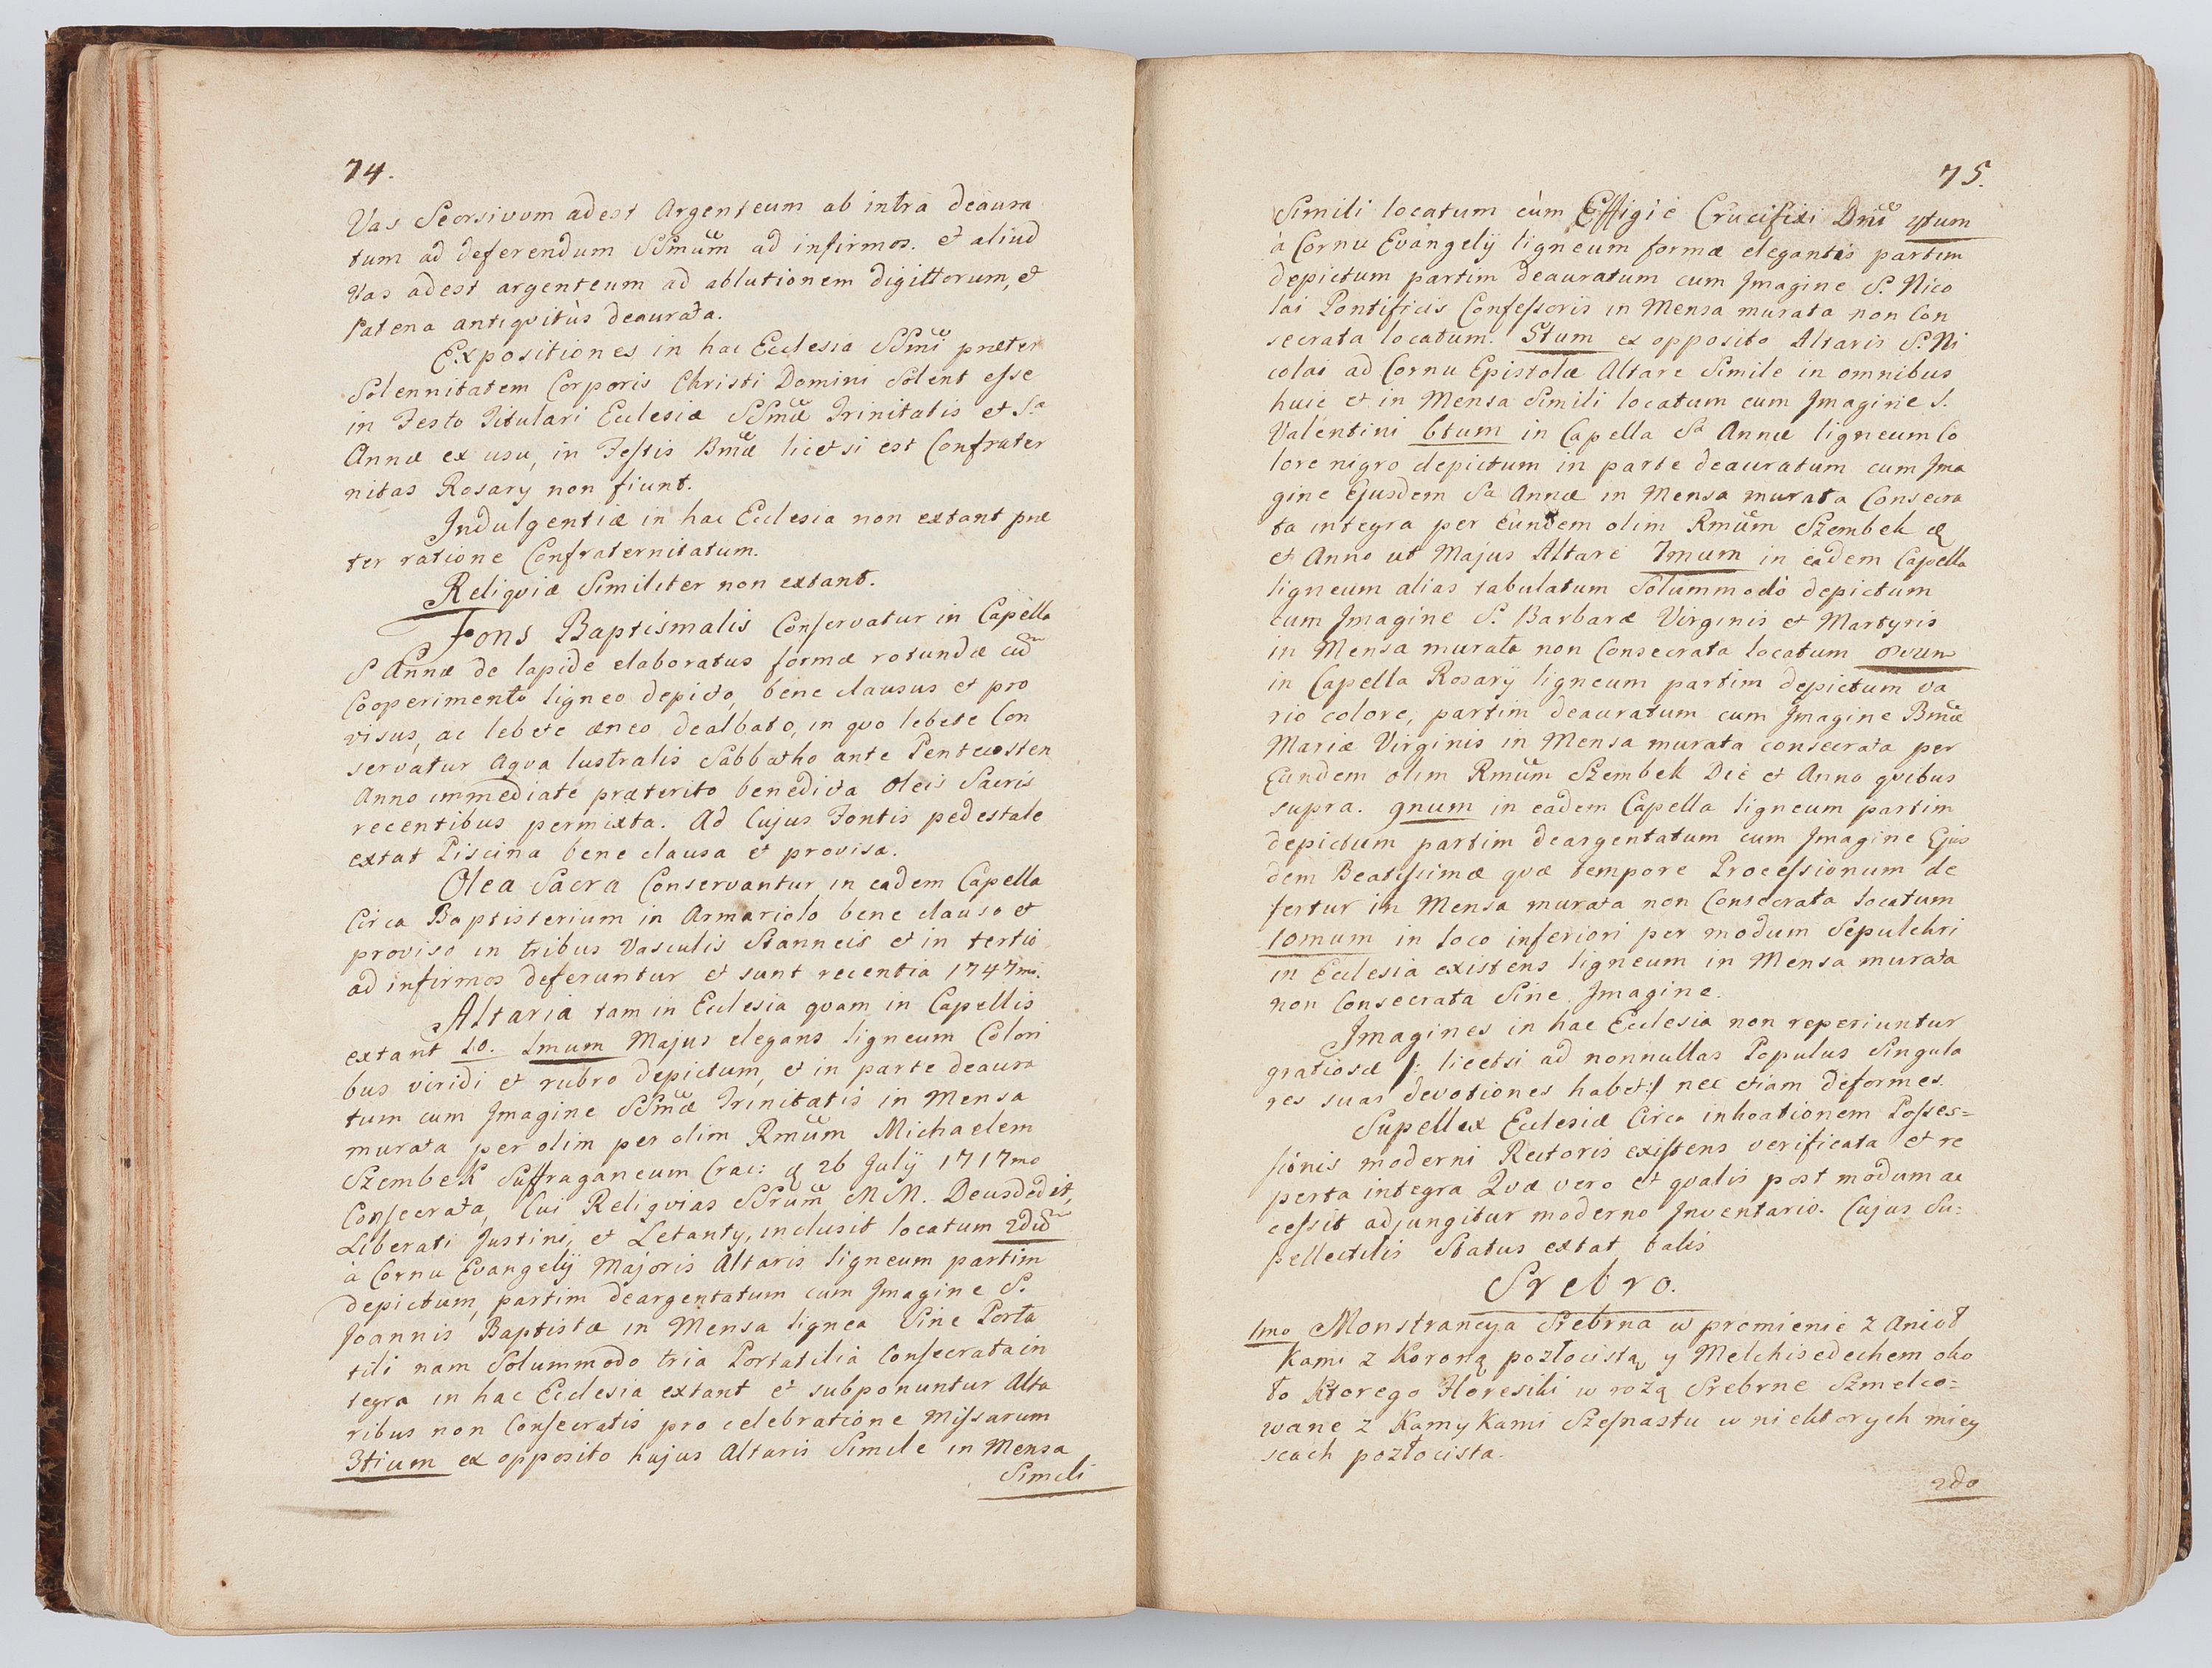 74.
Vas Seorsivum adest Argenteum ab intra deaura
tum ad deferendum SSmum ad infirmos. et aliud
Vas adest argenteum ad ablutionem digittorum, et
Patena antiqvitùs deaurata.
Expositiones in hac Ecclesia SSmi præter
Solennitatem Corporis Christi Domini Solent esse
in Festo Titulari Ecclesiæ SSmæ Trinitatis et S.a
Annæ ex usu, in Festis Bmæ licet si est Confrater
nitas Rosary non fiunt.
Indulgentiæ in hac Ecclesia non extant præ
ter ratione Confraternitatum.
Reliqviæ Similiter non extant.
Fons Baptismalis Conservatur in Capella
S Annæ de lapide elaboratus formæ rotundæ cũ
Cooperimento ligneo depicto, bene clausus et pro
visus, ac lebete æneo dealbato, in qvo lebete Con
servatur Aqva lustralis Sabbatho ante Pentecosten
Anno immediaté præterito benedicta Oleis Sacris
recentibus permixta. Ad Cujus Fontis pedestale
extat Piscina bene clausa et provisa.
Olea Sacra Conservantur in eadem Capella
Circa Baptisterium in Armariolo bene clauso et
proviso in tribus Vasculis Stanneis et in tertio
ad infirmos deferuntur et sunt recentia 1747mi.
Altaria tam in Ecclesia qvam in Capellis
extant 10. 1mum Majus elegans ligneum Colori
bus viridi et rubro depictum, et in parte deaura
tum cum Imagine SSmæ Trinitatis in Mensa
murata per olim per olim Rmum Michaelem
Szembek Suffraganeum Crac: d 26 July 1717mo
Consecrata, Cui Reliqvias SSrum MM. Deusdedit,
Liberati Justini, et Letanty, inclusit locatum 2dũ
à Cornu Evangelij Majoris Altaris ligneum partim
depictum, partim deargentatum cum Imagine S.
Joannis Baptistæ in Mensa lignea Sine Porta
tili nam Solummodo tria Portatilia Consecrata in
tegra in hac Ecclesia extant et subponuntur Alta
ribus non Consecratis pro celebratione Missarum
3tium ex opposito hujus Altaris Simile in Mensa
Simili
75.
Simili locatum cùm Effigie Crucifixi Dni 4tum
à Cornu Evangelij ligneum formæ elegantis partim
depictum partim deauratum cum Imagine S. Nico
lai Pontificis Confessoris in Mensa murata non Con
secrata locatum. 5tum ex opposito Altaris S. Ni
colai ad Cornu Epistolæ Altare Simile in omnibus
huic et in Mensa Simili locatum cum Imagine S.
Valentini 6tum in Capella Sa Annæ ligneum Co
lore nigro depictum in parte deauratum cum Ima
gine Ejusdem Sa Annæ in Mensa murata Consecra
ta integra per Eundem olim Rmum Szembek d
et Anno ut Majus Altare 7mum in eadem Capella
ligneum alias tabulatum Solummodò depictum
cum Imagine S. Barbaræ Virginis et Martyris
in Mensa murata non Consecrata locatum 8vum
in Capella Rosarij ligneum partim depictum va
rio colore, partim deauratum cum Imagine Bmæ
Mariæ Virginis in Mensa murata consecrata per
Eundem olim Rmum Szembek Die et Anno qvibus
supra. 9num in eadem Capella ligneum partim
depictum partim deargentatum cum Imagine Ejus
dem Beatissimæ qvæ tempore Processionum de
fertur in Mensa murata non Consecrata locatum
10mum in loco inferiori per modum Sepulchri
in Ecclesia existens ligneum in Mensa murata
non Consecrata Sine Imagine.
Imagines in hac Ecclesia non reperiuntur
gratiosæ /: licetsi ad nonnullas Populus Singula
res suas devotiones habet:/ nec etiam deformes.
Supellex Ecclesiæ Circa inhoationem Posses=
sionis moderni Rectoris existens verificata et re
perta integra Qvæ vero et qvalis post modum ac
cessit adjungitur moderno Inventario. Cujus Su=
pellectilis Status extat talis
Srebro.
1mo Monstrancya Srebrna w promienie z Anioł
kami z Koroną pozłocistą, y Melchisedechem oko
ło Ktorego Floresiki w rożą Srebrne Szmelco=
wane z Kamykami Szesnastu w niektorych miey
scach pozłocista.
2do